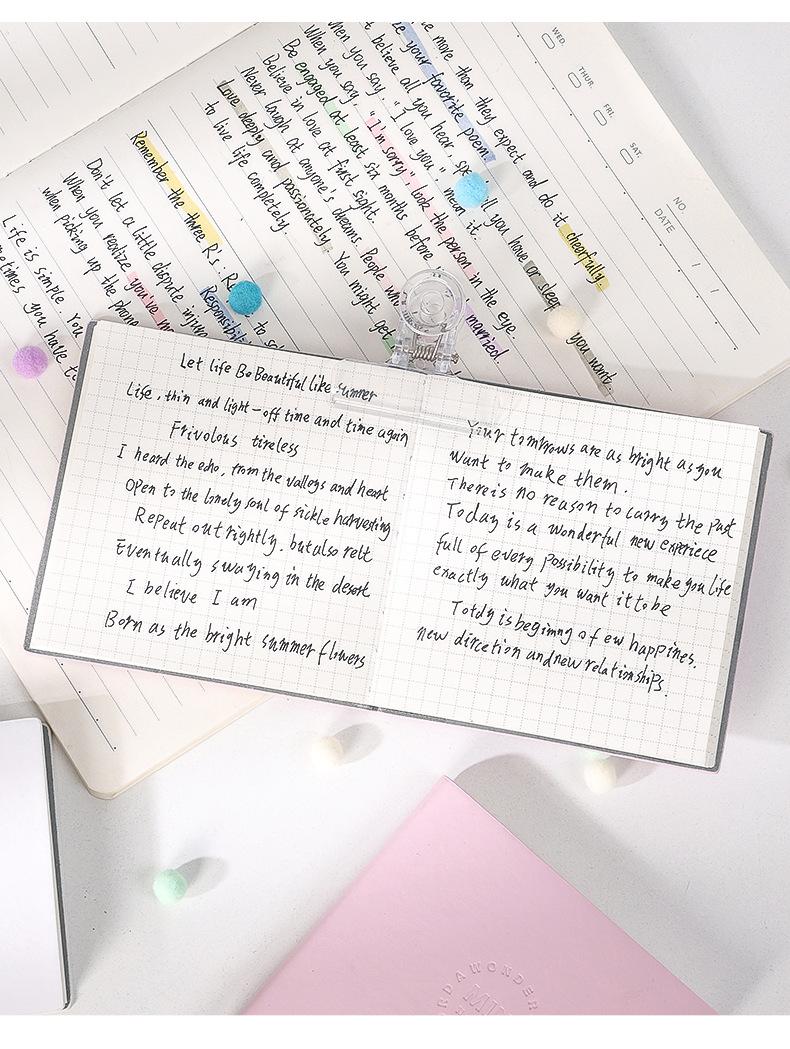 WED.
THUR.
FRI.
SAT.
NO.
DATE / /
e more than they expect and do it cheerfully.
e your favorite poem.
t believe all you hear, spe ll you have or sleep you want.
When you say "I love you" mean it.
When you say, "I'm sorry" look the person in the eye.
Be engaged at least six months before married.
Believe in love at first sight.
Never laugh at anyone's dreams. People wh
Love deeply and passionately. You might get
to live life completely.
Remember the three R's. R
Responsibili
Don't let a little dispute injure
When you realize you've m
when picking up the phone
Life is simple. You
metimes you have to
Let life Be Beautiful like summer
Life, thin and light-off time and time again
Frivolous tireless
I heard the echo, from the valleys and heart
Open to the lonely soul of sickle harvesting
Repeat outrightly, but also relt
Eventually swaying in the desert
I believe I am
Born as the bright summer flowers
Your tomrrows are as bright as you
Want to make them.
There is no reason to carry the past
Today is a wonderful new experiece
full of every possibility to make you life
exactly what you want it to be
Totdy is beginng of ew happines.
new dircetion and new relationships.
RDAWONDER